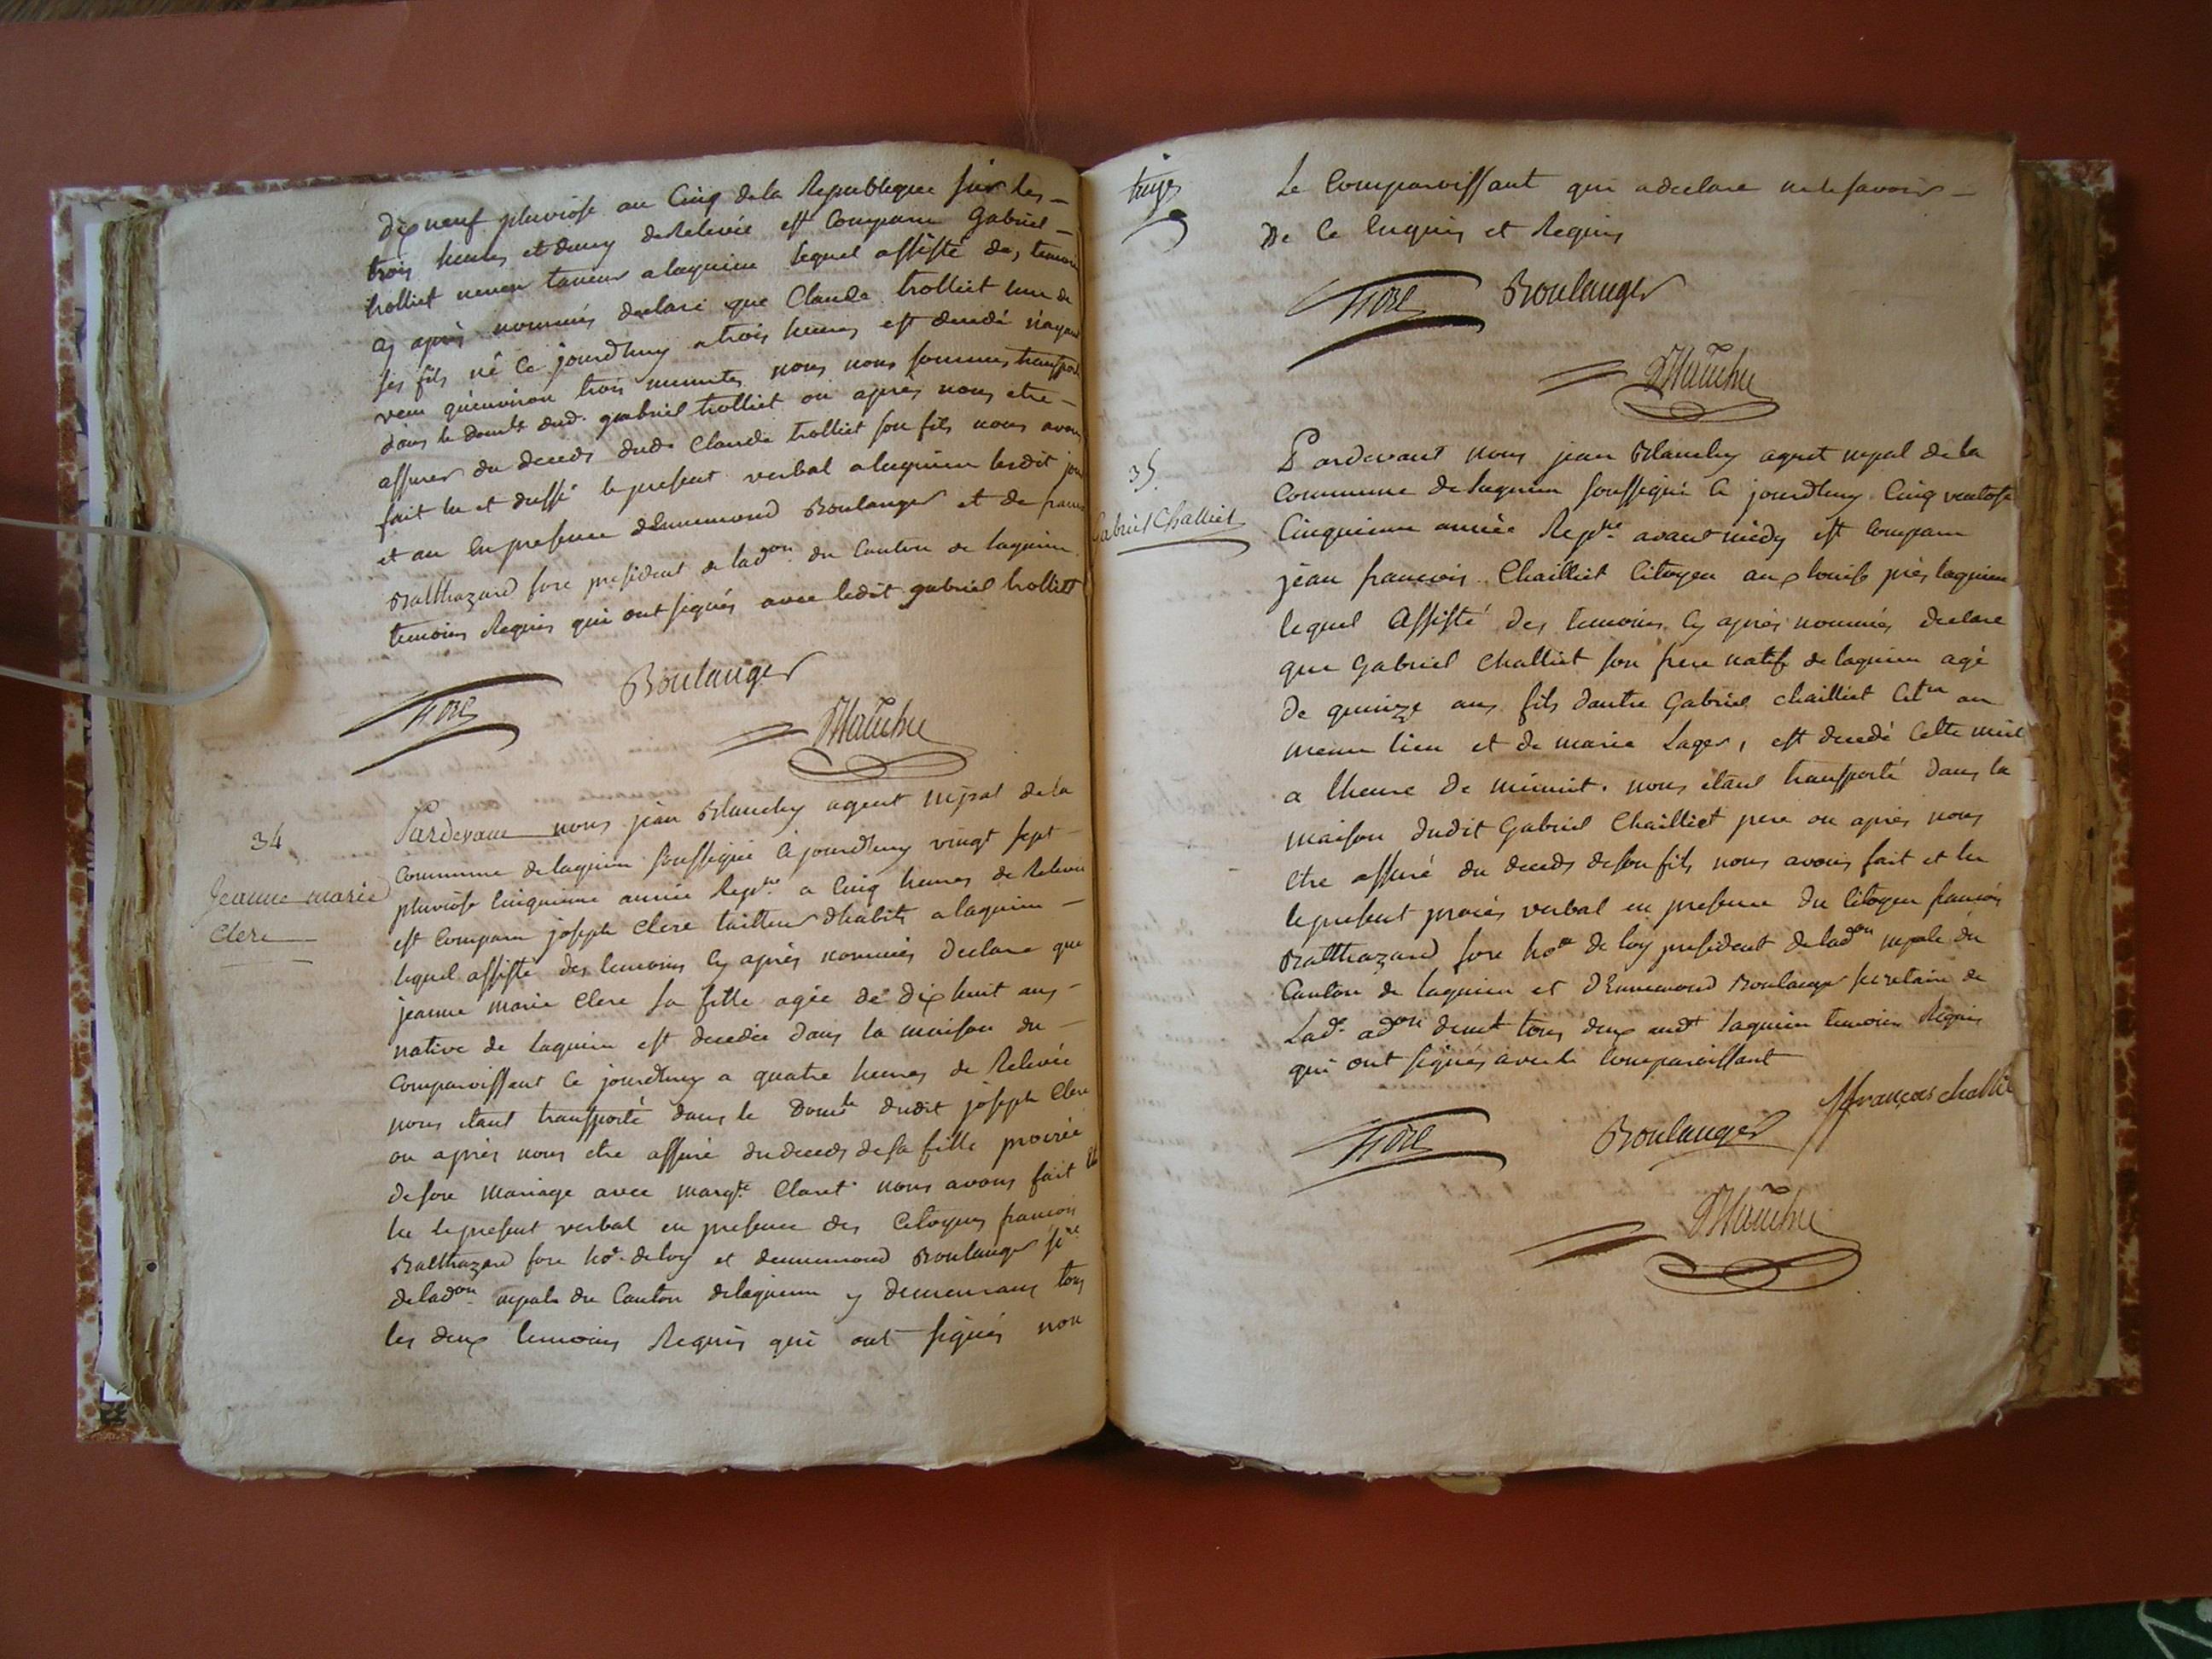 dix neuf pluviose an Cinq de la Republique sur les
trois heures et demy de Relevée est Comparu Gabriel
trolliet taneur a lagnieu lequel assisté des temoins
cy après nommés declare que Claude trolliet un de
ses fils né Ce jourdhuy a trois heures est decedé n'ayant
vecu qu'environ trois minutes nous nous sommes transporté
dans le domle dud. gabriel trolliet ou après nous etre
assurer du deceds dud. Claude trolliet son fils nous avons
fait lu et dressé le present verbal a lagnieu lesdit jour
et an En presence dEnnemond Boulanger et de francois
Balthazard fore president de ladon du Canton de lagnieu
temoins Requis qui ont signés avec ledit gabriel trolliet
fore Boulanger
Blanchy
34
Jeanne marie
Clere
Pardevant nous jean Blanchy agent mpal de la
Commune de lagnieu soussigné Ce jourdhuy vingt sept
pluviose Cinquieme année Repne a Cinq heures de Relevée
est Comparu joseph Clere tailleur dhabits a lagnieu
lequel assisté des temoins Cy après nommés declare que
jeanne marie Clere sa fille agée de dix huit ans
native de lagnieu est decedée dans la maison du
Comparoissant Ce jourdhuy a quatre heures de Relevée
nous etant transporté dans le Domle dudit joseph Clere
ou après nous etre assuré du deceds de sa fille procréé
de son Mariage avec margte Claret nous avons fait et
lu le present verbal en presence des Citoyens francois
Balthazard fore ho. de loy et dennemond Boulanger sre
de ladon mpale du Canton de lagnieu y demeurans tous
les deux temoins Requis qui ont signés non
treize
Le Comparoissant qui a declare ne le savoir
De Ce Enquis et Requis
fore Boulanger
Blanchy
35.
Gabriel Challiet
Pardevant nous jean Blanchy agent mpal de la
Commune de lagnieu soussigné Ce jourdhuy Cinq ventose
Cinquieme année Repne avant midy est Comparu
jean francois Chailliet Citoyen aux près lagnieu
lequel Assisté des temoins Cy après nommés declare
que Gabriel Challiet son frere natif de lagnieu agé
de quinze ans fils dautre Gabriel chailliet Citen au
meme lieu et de marie Lager, est decedé Cette nuit
a lheure de minuit. nous etant transporté dans la
maison dudit Gabriel Chailliet pere ou après nous
etre assuré du deceds de son fils nous avons fait et lu
le present procès verbal en presence du Citoyen francois
Balthazard fore ho de loy president de ladon mpale du
Canton de lagnieu et dEnnemond Boulanger secretaire de
Lade adon demt tous deux audt lagnieu temoins Requis
qui ont signés avec le Comparoissant
fore Boulanger francois challie
Blanchy